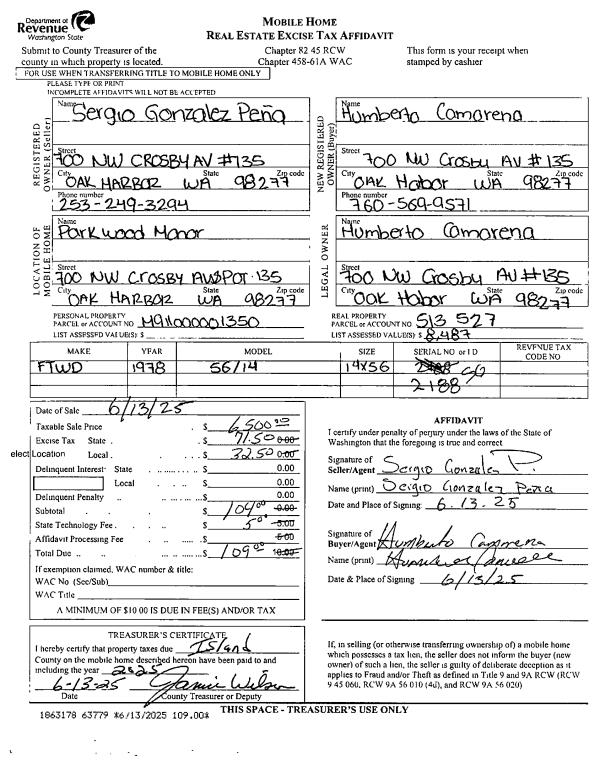 Department of
Revenue
Washington State
MOBILE HOME
REAL ESTATE EXCISE TAX AFFIDAVIT
Submit to County Treasurer of the
county in which property is located.
Chapter 82 45 RCW
Chapter 458-61A WAC
This form is your receipt when
stamped by cashier
FOR USE WHEN TRANSFERRING TITLE TO MOBILE HOME ONLY
PLEASE TYPE OR PRINT
INCOMPLETE AFFIDAVITS WILL NOT BE ACCEPTED
REGISTERED
OWNER (Seller)
Name Sergio Gonzalez Peña
Street
700 NW CROSBY AV #135
City State Zip code
OAK HARBOR WA 98277
Phone number
253-249-3294
NEW REGISTERED
OWNER (Buyer)
Name
Humberto Camarena
Street
700 NW Crosby AV #135
City State Zip code
OAK Habor WA 98277
Phone number
760-569-9571
LOCATION OF
MOBILE HOME
Name
Parkwood Manor
Street
700 NW Crosby AV SPOT 135
City State Zip code
OAK HARBOR WA 98277
LEGAL OWNER
Name
Humberto Camarena
Street
700 NW Crosby AV #135
City State Zip code
Oak Habor WA 98277
PERSONAL PROPERTY
PARCEL or ACCOUNT NO M911000001350
LIST ASSESSED VALUE(S) $
REAL PROPERTY
PARCEL or ACCOUNT NO 513 527
LIST ASSESSED VALUE(S) $ 8,487
MAKE YEAR MODEL SIZE SERIAL NO or I D REVENUE TAX CODE NO
FTWD 1978 56/14 14x56 2188
2188
Date of Sale 6/13/25
Taxable Sale Price $ 6,500.00
Excise Tax State $ 71.50 0.00
elect Location Local $ 32.50 0.00
Delinquent Interest State $ 0.00
Local $ 0.00
Delinquent Penalty $ 0.00
Subtotal $ 104.00 0.00
State Technology Fee $ 5.00 5.00
Affidavit Processing Fee $ 5.00
Total Due $ 109.00 10.00
If exemption claimed, WAC number & title:
WAC No (Sec/Sub)
WAC Title
A MINIMUM OF $10 00 IS DUE IN FEE(S) AND/OR TAX
AFFIDAVIT
I certify under penalty of perjury under the laws of the State of
Washington that the foregoing is true and correct
Signature of
Seller/Agent Sergio Gonzalez P.
Name (print) Sergio Gonzalez Peña
Date and Place of Signing 6.13.25
Signature of
Buyer/Agent Humberto Camarena
Name (print)
Date & Place of Signing 6/13/25
TREASURER'S CERTIFICATE
I hereby certify that property taxes due Island
County on the mobile home described hereon have been paid to and
including the year 2025
6-13-25 Jamie Wilson
Date County Treasurer or Deputy
If, in selling (or otherwise transferring ownership of) a mobile home
which possesses a tax lien, the seller does not inform the buyer (new
owner) of such a lien, the seller is guilty of deliberate deception as it
applies to Fraud and/or Theft as defined in Title 9 and 9A RCW (RCW
9 45 060, RCW 9A 56 010 (4d), and RCW 9A 56 020)
THIS SPACE - TREASURER'S USE ONLY
1863178 63779 *6/13/2025 109.00*